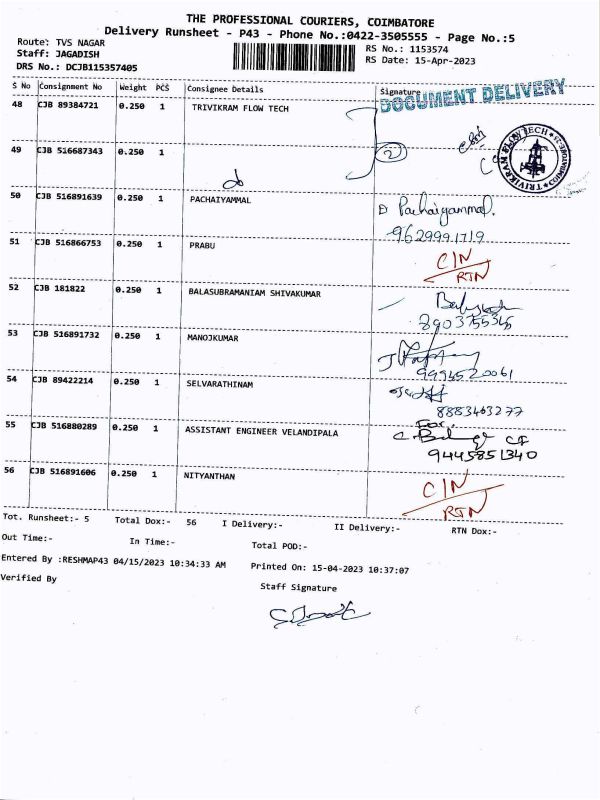 THE PROFESSIONAL COURIERS, COIMBATORE
Delivery Runsheet - P43 - Phone No.:0422-3505555 - Page No.:5
Route: TVS NAGAR
RS No.: 1153574
Staff: JAGADISH
RS Date: 15-Apr-2023
DRS No.: DCJB115357405
S No Consignment No Weight PCS Consignee Details Signature
DOCUMENT DELIVERY
48 CJB 89384721 0.250 1 TRIVIKRAM FLOW TECH
TRIVIKRAM FLOW TECH COIMBATORE
49 CJB 516687343 0.250 1
2
50 CJB 516891639 0.250 1 PACHAIYAMMAL
Pachaiyammal.
9629991719
51 CJB 516866753 0.250 1 PRABU
C/N
RTN
52 CJB 181822 0.250 1 BALASUBRAMANIAM SHIVAKUMAR
8903755345
53 CJB 516891732 0.250 1 MANOJKUMAR
9994520061
54 CJB 89422214 0.250 1 SELVARATHINAM
8883463277
55 CJB 516880289 0.250 1 ASSISTANT ENGINEER VELANDIPALA
For.
9445851340
56 CJB 516891606 0.250 1 NITYANTHAN
C/N
RTN
Tot. Runsheet:- 5 Total Dox:- 56 I Delivery:- II Delivery:- RTN Dox:-
Out Time:- In Time:- Total POD:-
Entered By :RESHMAP43 04/15/2023 10:34:33 AM Printed On: 15-04-2023 10:37:07
Verified By
Staff Signature